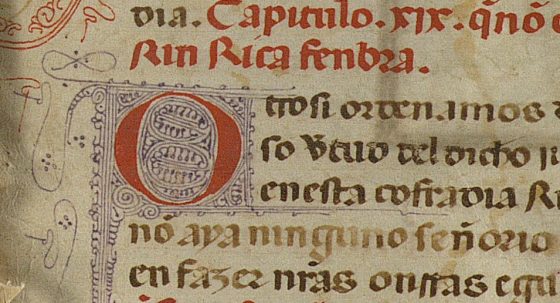 dia. Capitulo. xix. q̄ nō
Rin Rica fenbra.
Otrosi ordenamos
so v̄tud del dicho
en esta cofradia Ri
nō aya ninguno señorio
en fazer nr̄as onrras